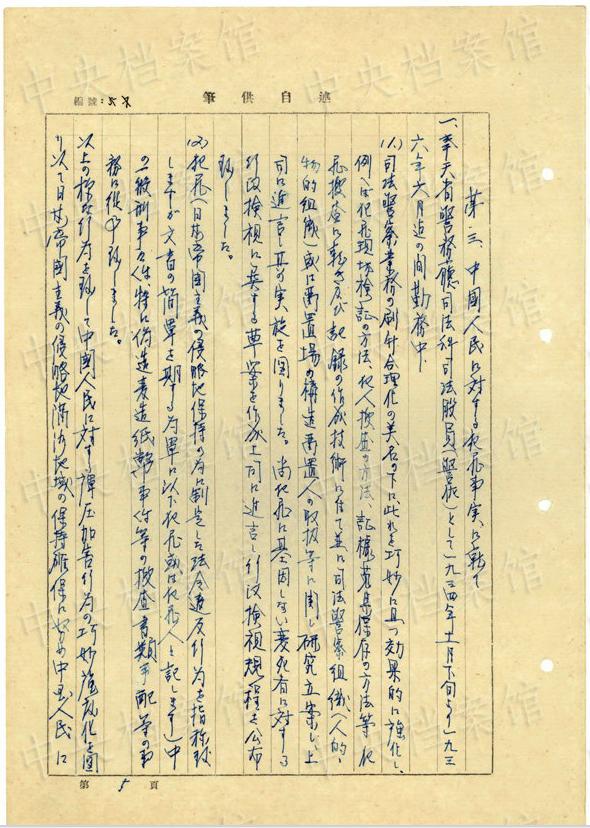 述自供筆
編號:
第三、中國人民に対する犯罪事実に就て
一、奉天省警務廳司法科司法股員(警佐)として一九三四年十一月下旬より一九三
六年六月迄の間勤務中、
(1)司法警察業務の刷新合理化の美名の下に、此れを巧妙に且つ効果的に強化し、
例へば犯罪現場検証の方法、犯人捜査の方法、証據蒐集保存の方法等犯
罪捜査に就き及び記録の作成技術に付て並に司法警察組織(人的、
物的組織)或は留置場の構造留置人の取扱等に関し研究立案し、上
司に進言し其の実施を図りました。尚犯罪に基因しない変死者に対する
行政検視に関する草案を作成上司に進言し行政検視規程を公布
致しました。
(2)犯罪(日本帝國主義の侵略地保持の為に制定した法令違反行為を指称致
しますが文書の簡単を期する為単に以下犯罪或は犯罪人と記します)中
の一般刑事々件、特に偽造変造紙幣事件等の捜査書類手配等の事
務に従事致しました。
以上の様な行為を致して中國人民に対する弾圧加害行為の巧妙強化を図
り以て日本帝國主義の侵略地満洲地域の保持確保に努め中國人民に
第 5 頁
中央档案馆